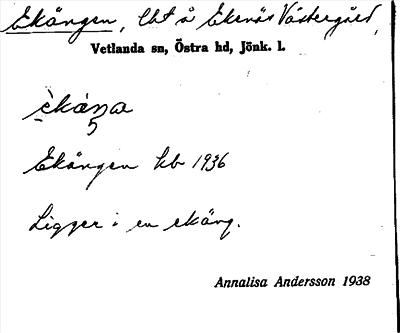 Ekången, lht å Ekenäs Västergård,
Vetlanda sn, Östra hd, Jönk. l.
Ekången kb 1936
Ligger i en ekäng.
Annalisa Andersson 1938